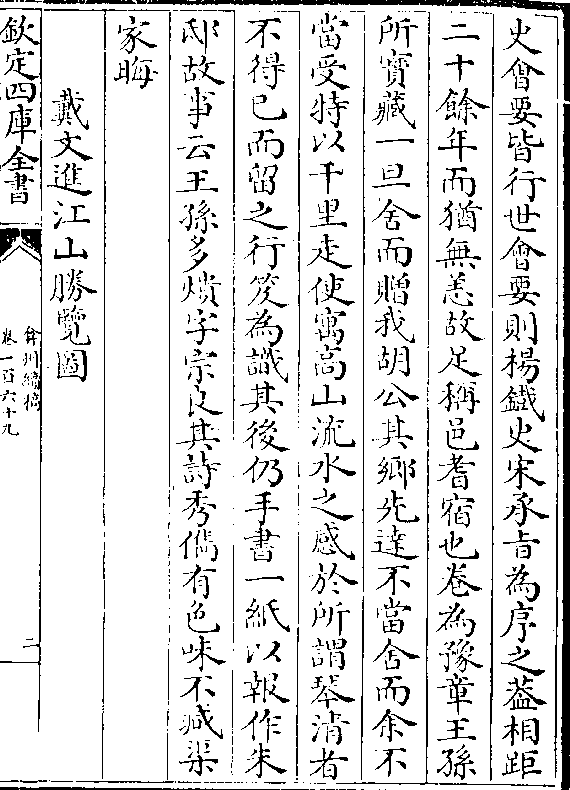 史㑹要皆行世㑹要則楊鐵史宋承旨為序之葢相距
二十餘年而猶無恙故足稱邑耆宿也卷為豫章王孫
所寳藏一旦舍而贈我胡公其鄉先達不當舍而余不
當受特以千里走使寓高山流水之感於所謂琴清者
不得已而留之行笈為識其後仍手書一紙以報作朱
邸故事云王孫多炡字宗良其詩秀儁有色味不減渠
家晦
戴文進江山勝覽圖
欽定四庫全書
弇州續稿
卷一百六十九
二